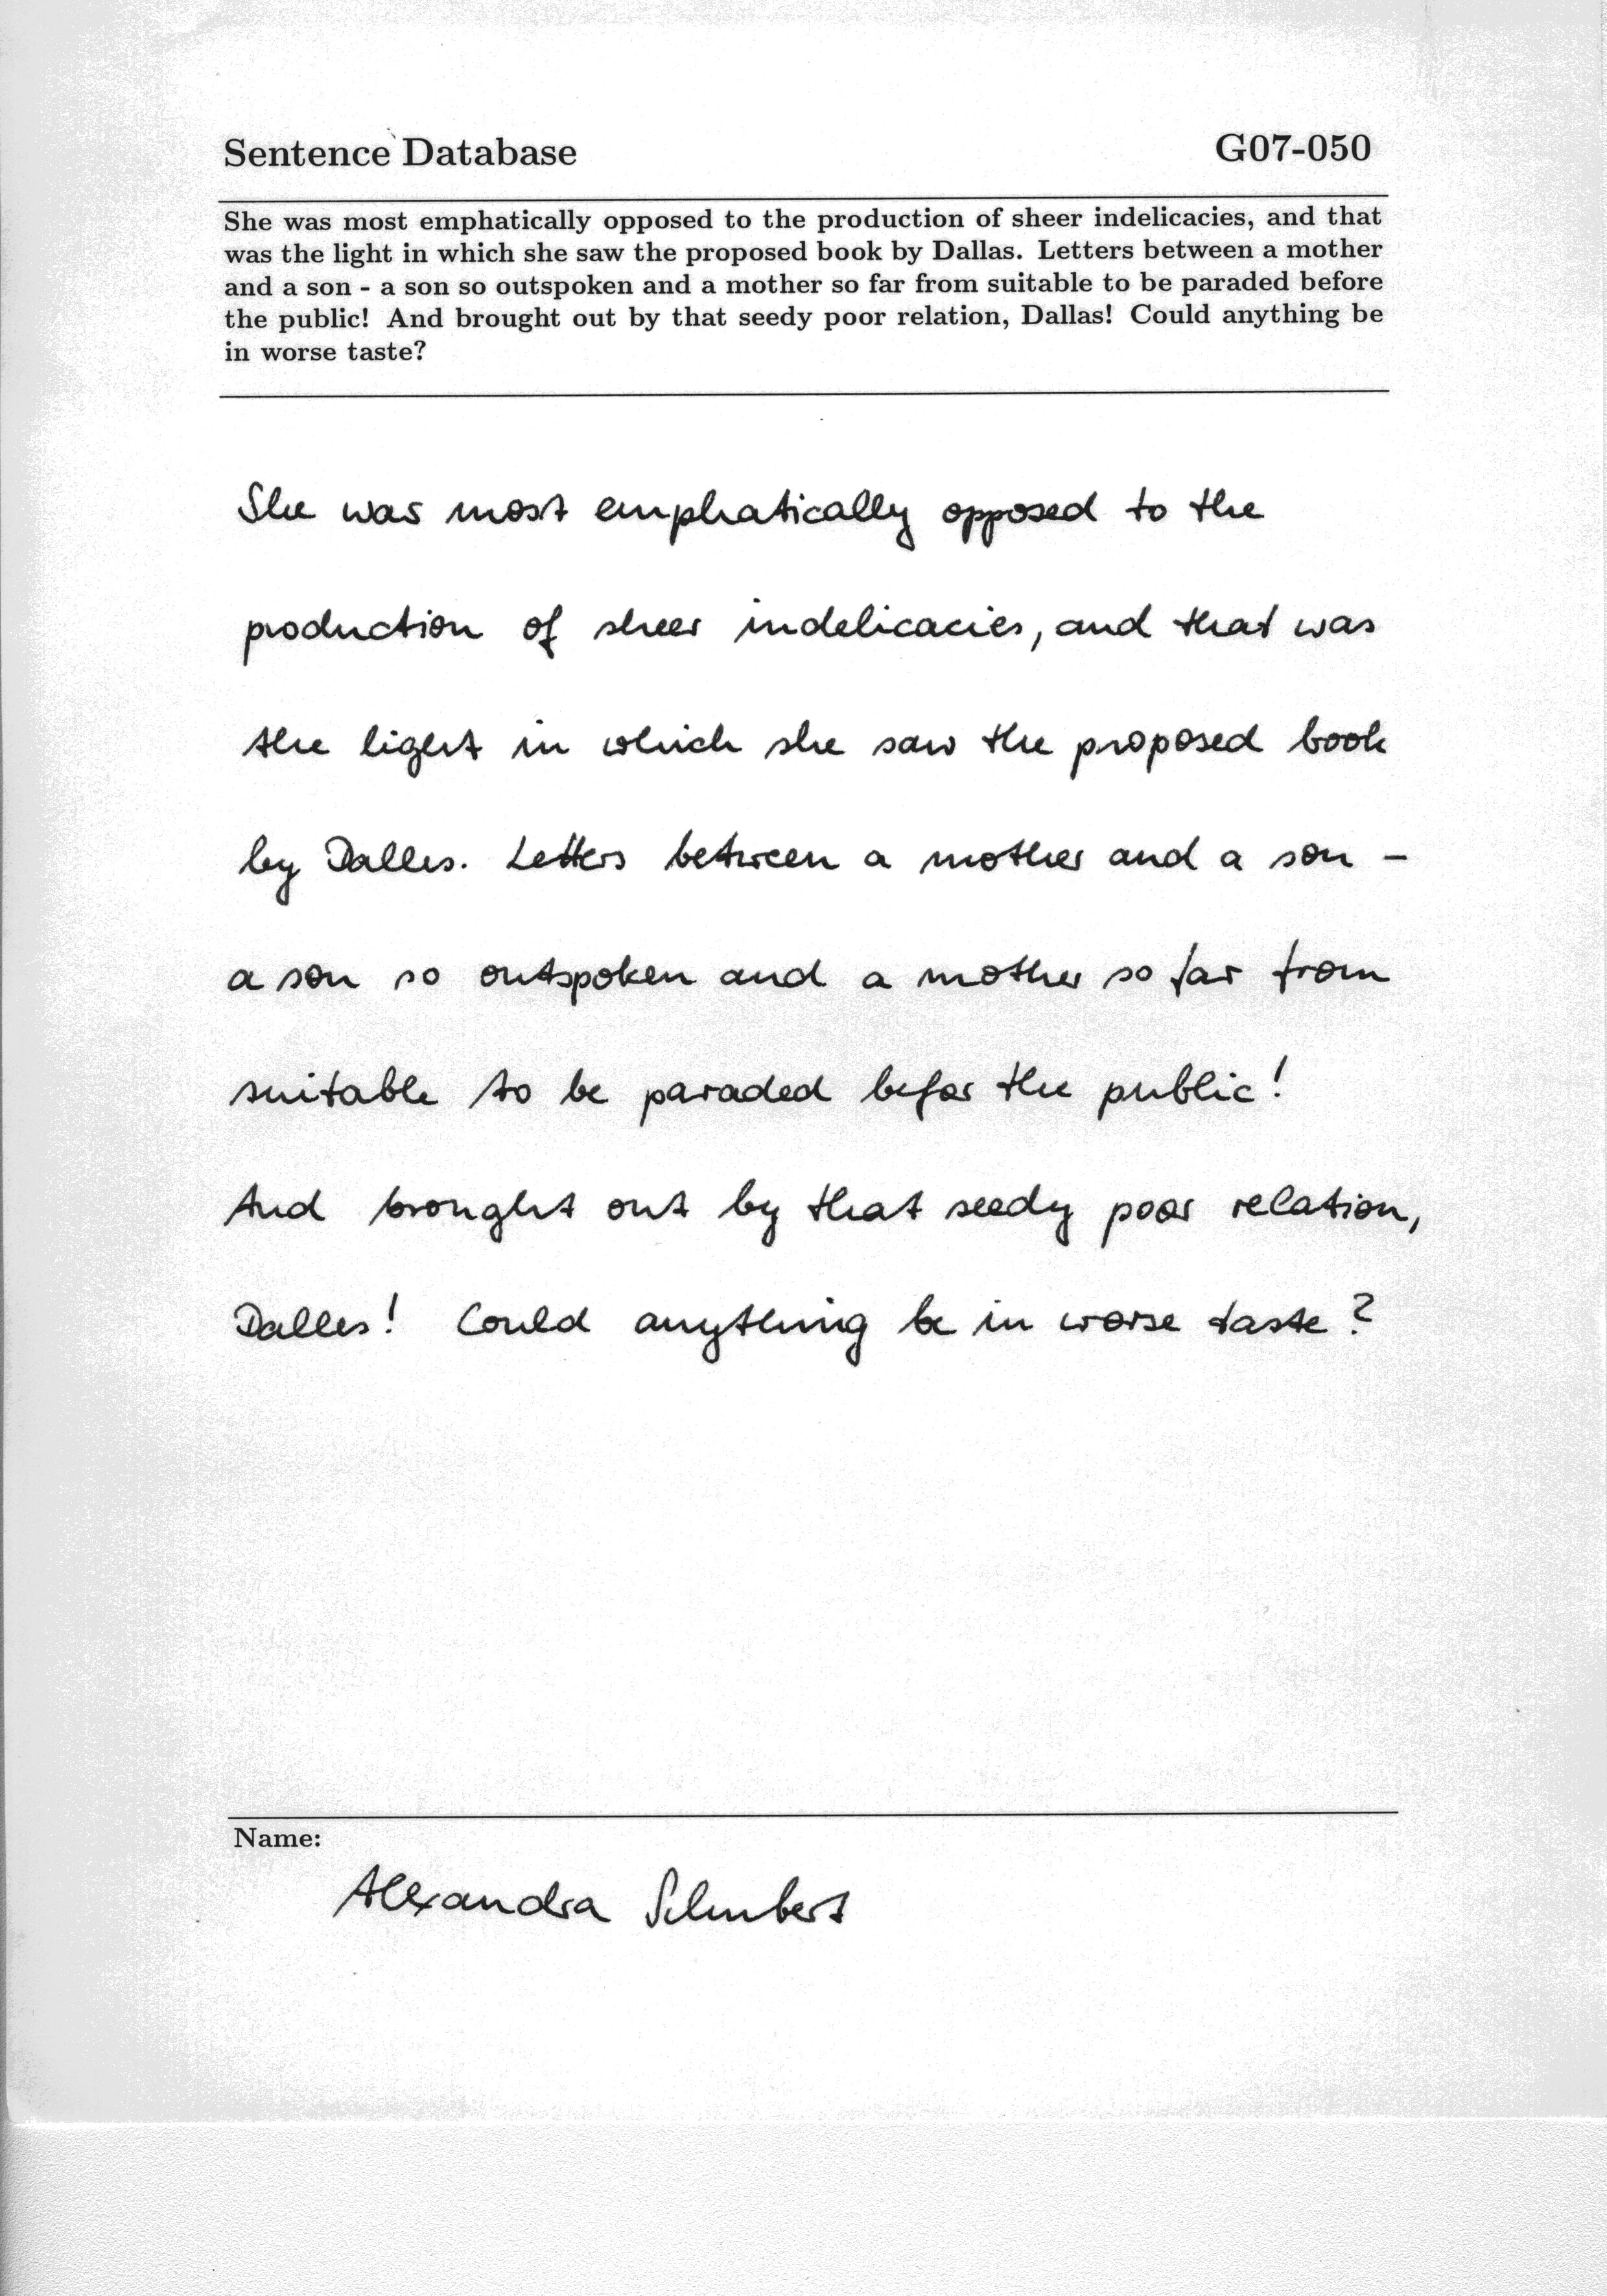 Sentence Database G07-050
She was most emphatically opposed to the production of sheer indelicacies, and that
was the light in which she saw the proposed book by Dallas. Letters between a mother
and a son - a son so outspoken and a mother so far from suitable to be paraded before
the public! And brought out by that seedy poor relation, Dallas! Could anything be
in worse taste?
She was most emphatically opposed to the
production of sheer indelicacies, and that was
the light in which she saw the proposed book
by Dalles. Letters between a mother and a son -
a son so outspoken and a mother so far from
suitable to be paraded befor the public!
And brought out by that seedy poor relation,
Dalles! Could anything be in worse taste?
Name:
Alexandra Schubert